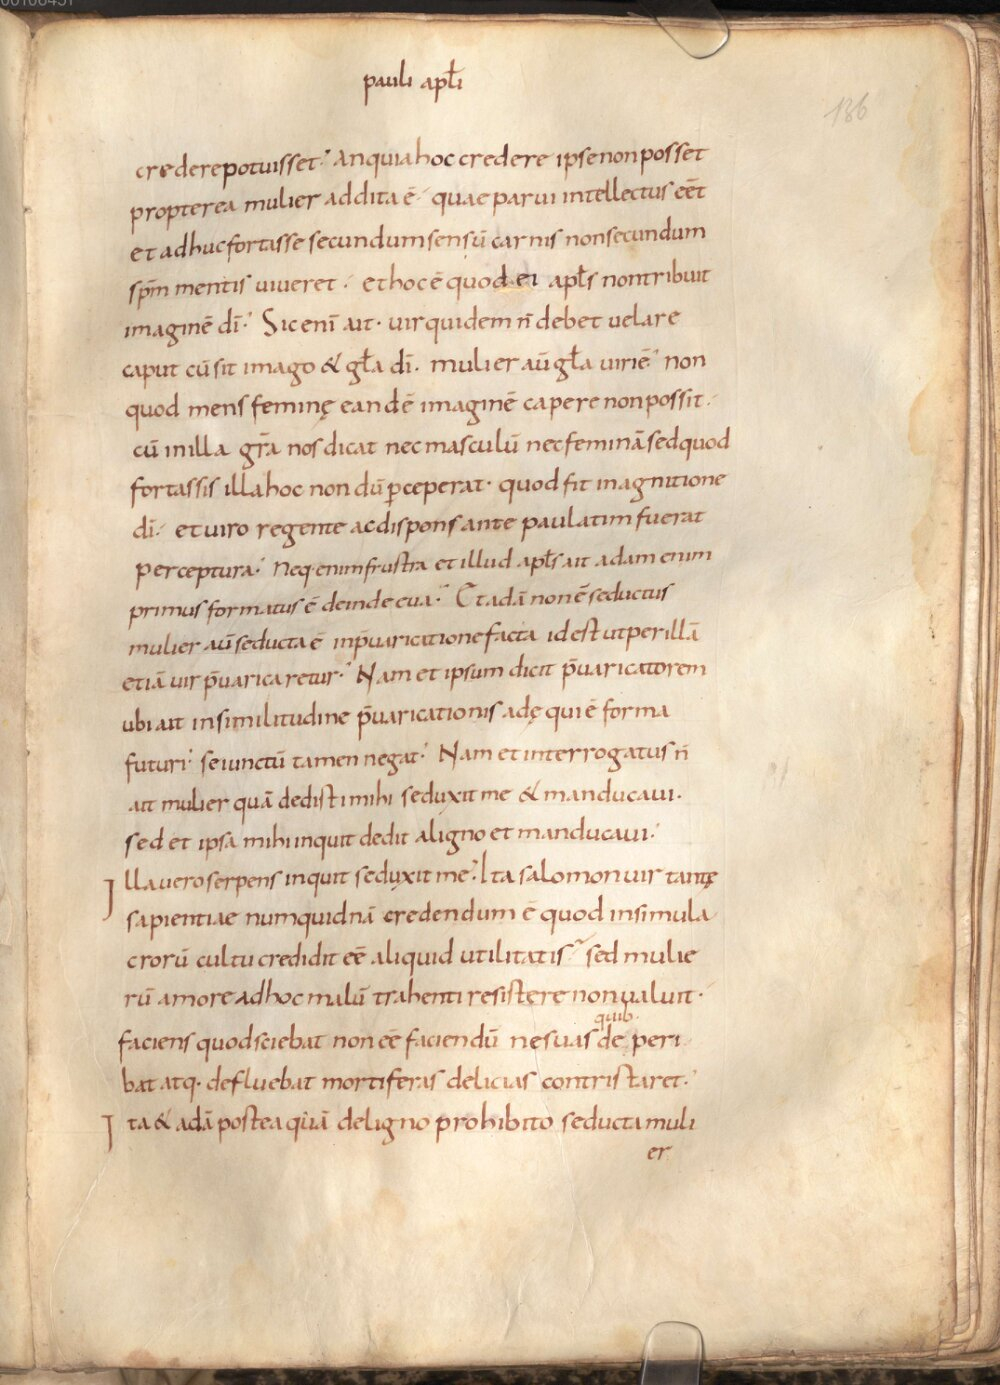 pauli apłi
136
credere potuisset·' An quia hoc credere ipse non posset
propterea mulier addita ē· quae parui intellectus eēt
et adhuc fortasse secundum sensū carnis non secundum
sp̄m mentis uiueret· et hoc ē quod ei apłs non tribuit
imaginē dī·' Sic enī ait· uir quidem n̄ debet uelare
caput cū sit imago & gła dī. mulier aū gła uiri ē·' non
quod mens feminę eandē imaginē capere non possit·
cū in illa gr̄a nos dicat nec masculū nec feminā sed quod
fortassis illa hoc non dū ꝑceperat· quod fit in agnitione
dī· et uiro regente ac dispensante paulatim fuerat
perceptura·' Neq· enim frustra et illud apłs ait adam enim
primus formatus ē deinde eua·' Et adā non ē seductus
mulier aū seducta ē in p̄uaricatione facta id est ut per illā
etiā uir p̄uaricaretur·' Nam et ipsum dicit p̄uaricatorem
ubi ait in similitudine p̄uaricationis adę qui ē forma
futuri·' seiunctū tamen negat·' Nam et interrogatus n̄
ait mulier quā dedisti mihi seduxit me & manducaui·
sed et ipsa mihi inquit dedit a ligno et manducaui·'
Illa uero serpens inquit seduxit me·' Ita salomon uir tantę
sapientiae numquidnā credendum ē quod in simula
crorū cultu credidit eē aliquid utilitatis·' sed mulie
rū amore ad hoc malū trahenti resistere non ualuit·
faciens quod sciebat non eē faciendū ne suas de peri
quib·
bat atq· defluebat mortiferas delicias contristaret·'
Ita & adā postea quā de ligno prohibito seducta muli
er